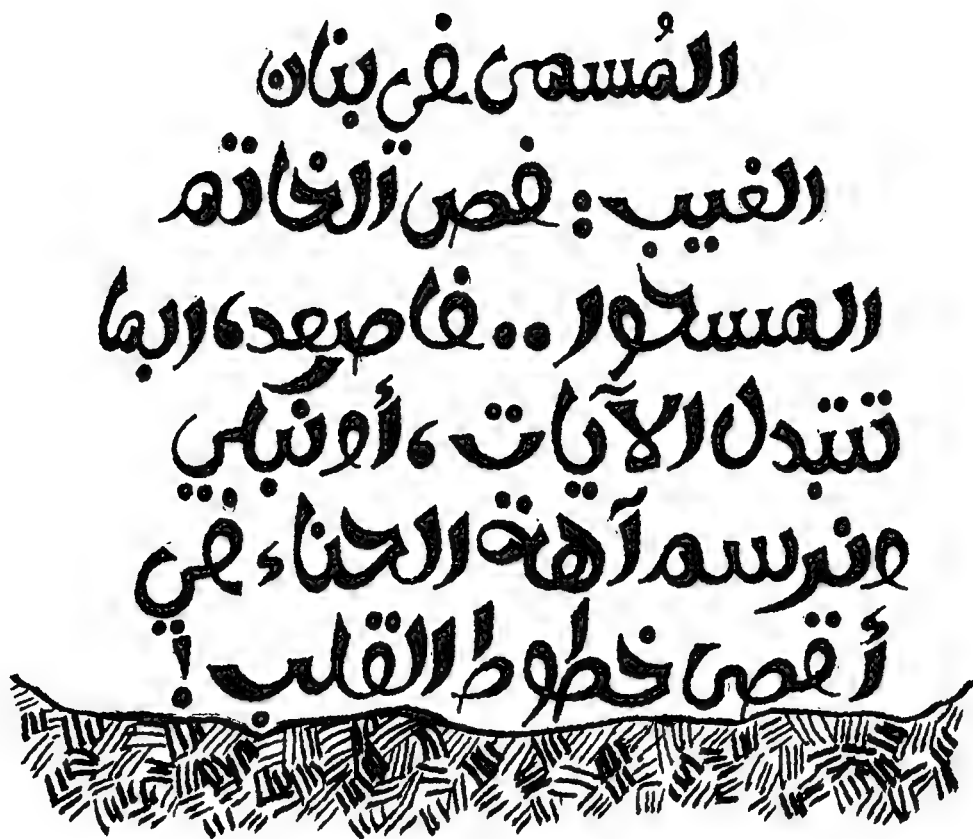 المُسمى في بنان
الغيب : فص الخاتم
المسحور .. فاصعد، ربما
تتبدل الآيات ، أو نبكي
ونرسم آهة الحناء في
أقصى خطوط القلب !